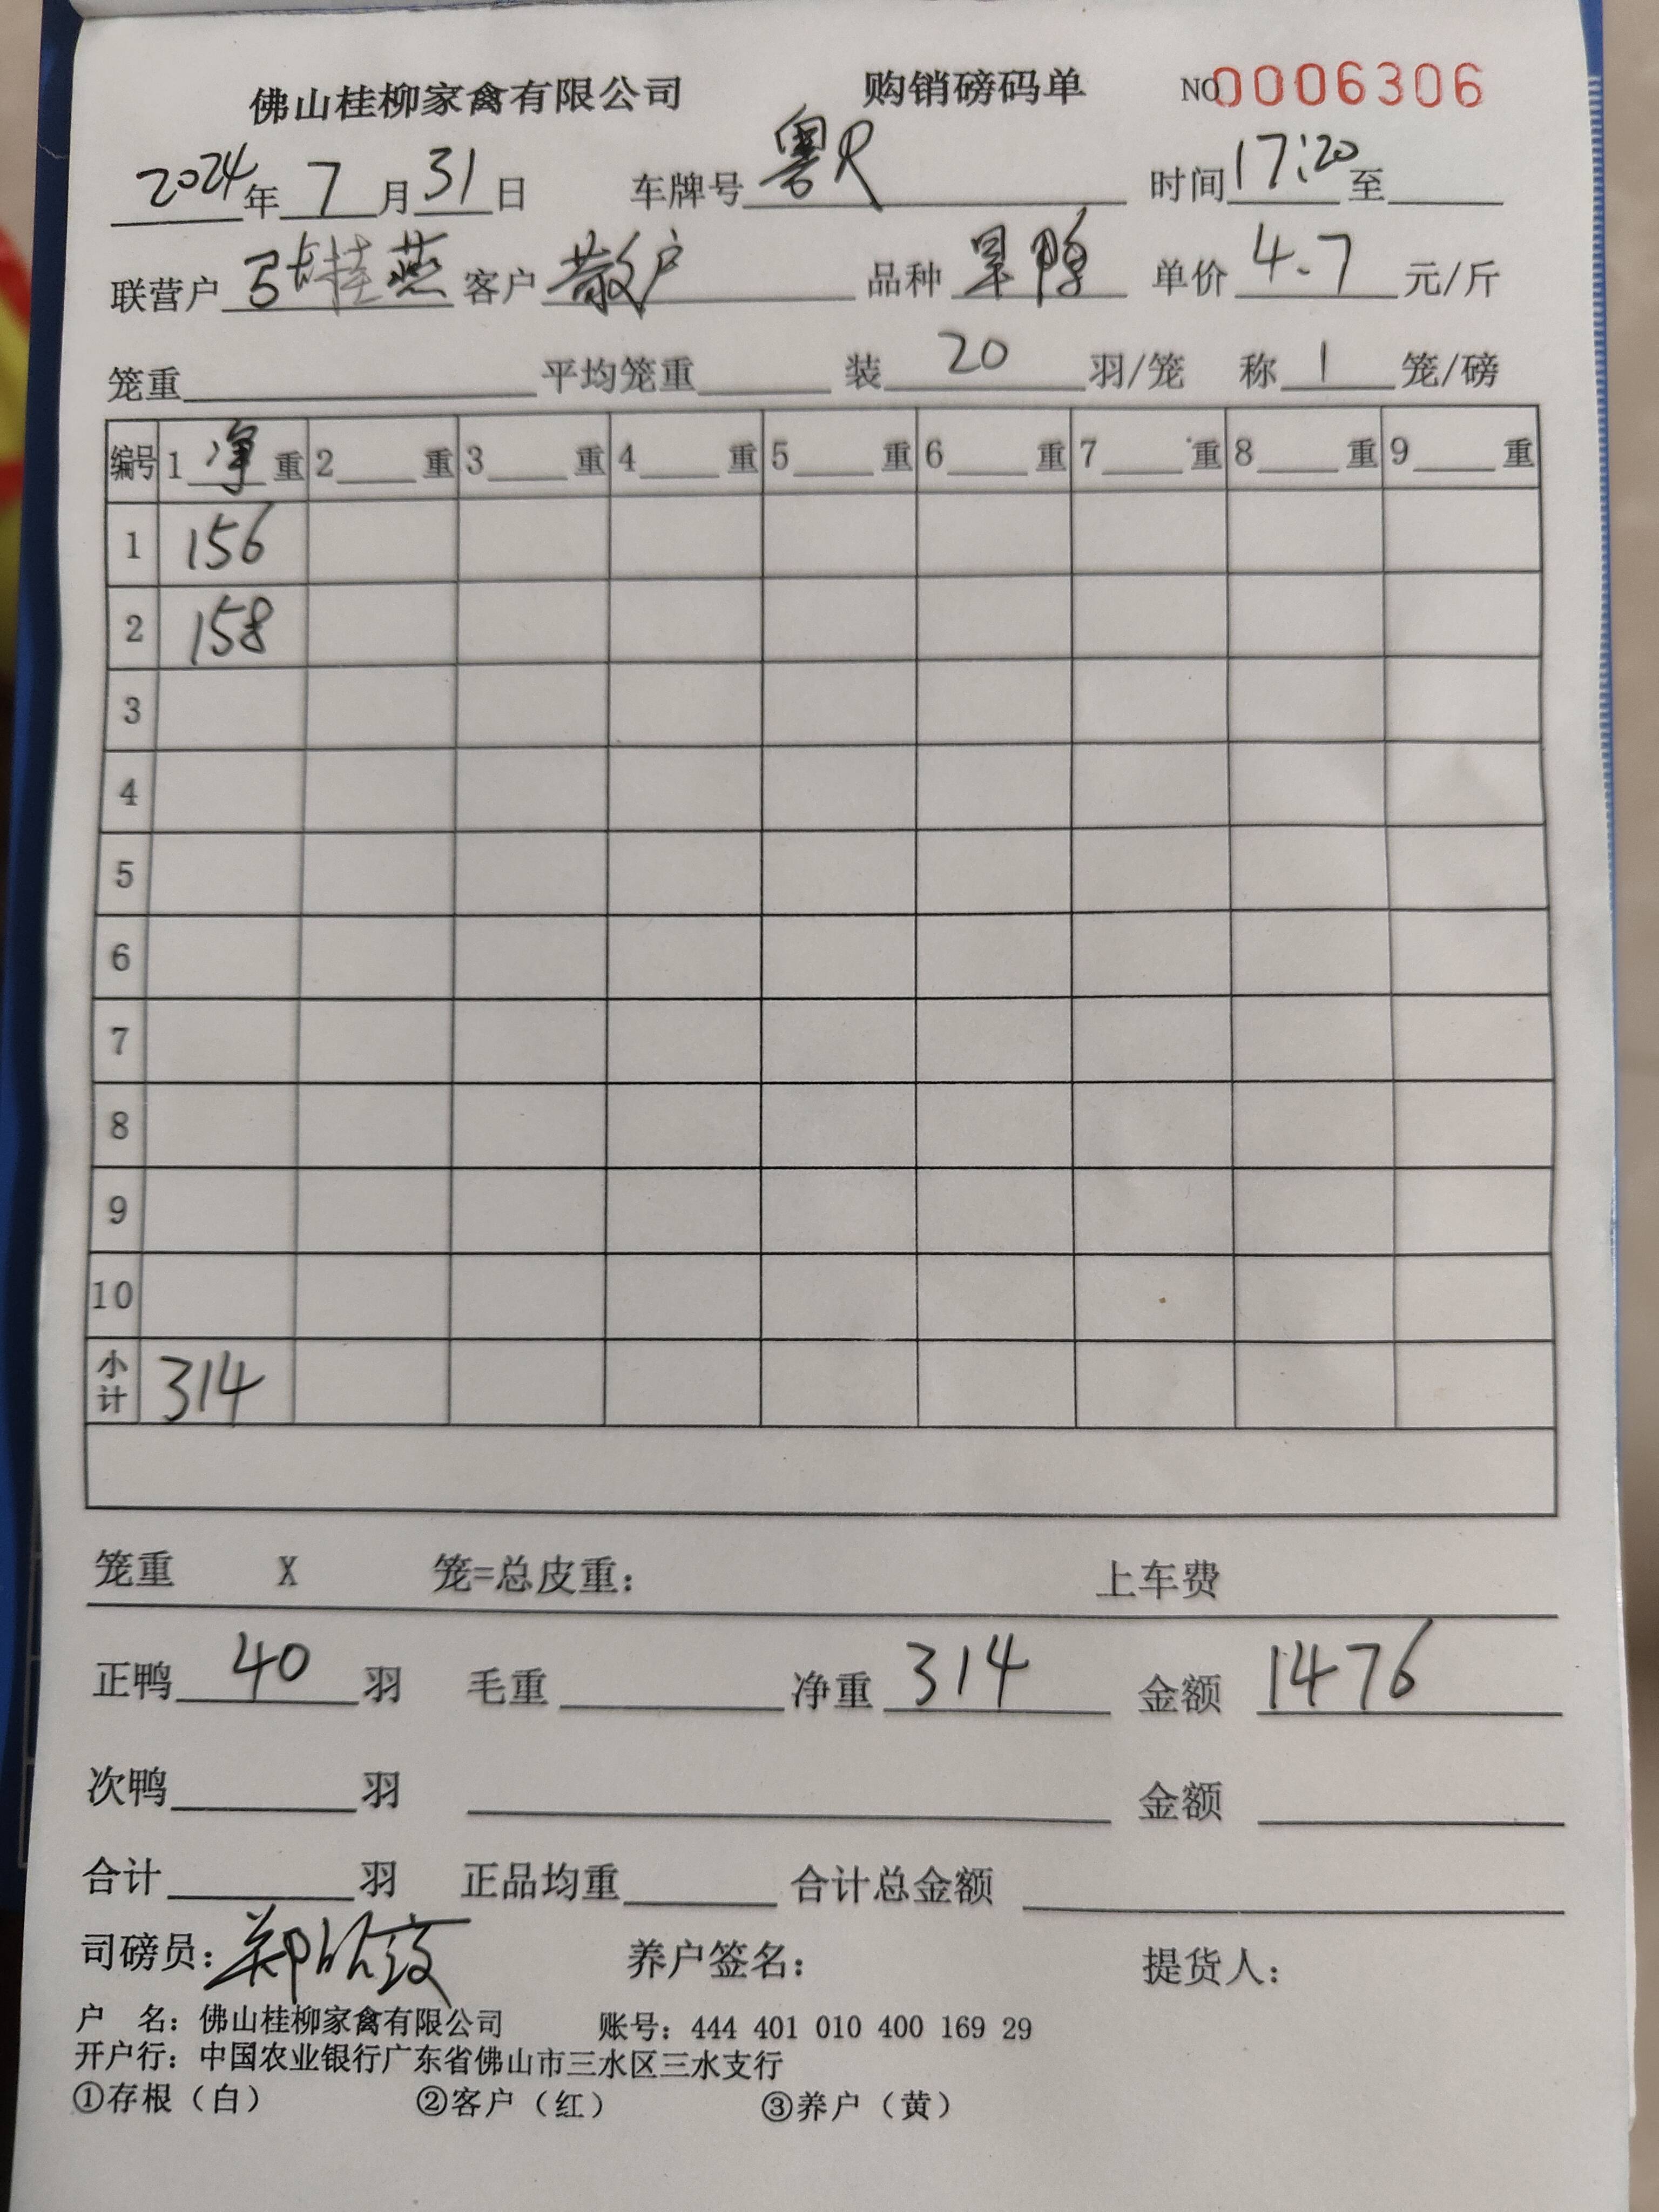 佛山桂柳家禽有限公司 购销磅码单 NO0006306
2024年7月31日 车牌号粤R 时间17:20至
联营户 桂燕 客户 散户 品种 旱鸭 单价 4.7 元/斤
笼重 平均笼重 装 20 羽/笼 称 1 笼/磅
编号 1 净 重 2 重 3 重 4 重 5 重 6 重 7 重 8 重 9 重
1 156
2 158
3
4
5
6
7
8
9
10
小计 314
笼重 X 笼=总皮重: 上车费
正鸭 40 羽 毛重 净重 314 金额 1476
次鸭 羽 金额
合计 羽 正品均重 合计总金额
司磅员: 郑 养户签名: 提货人:
户 名: 佛山桂柳家禽有限公司 账号: 444 401 010 400 169 29
开户行: 中国农业银行广东省佛山市三水区三水支行
①存根（白） ②客户（红） ③养户（黄）